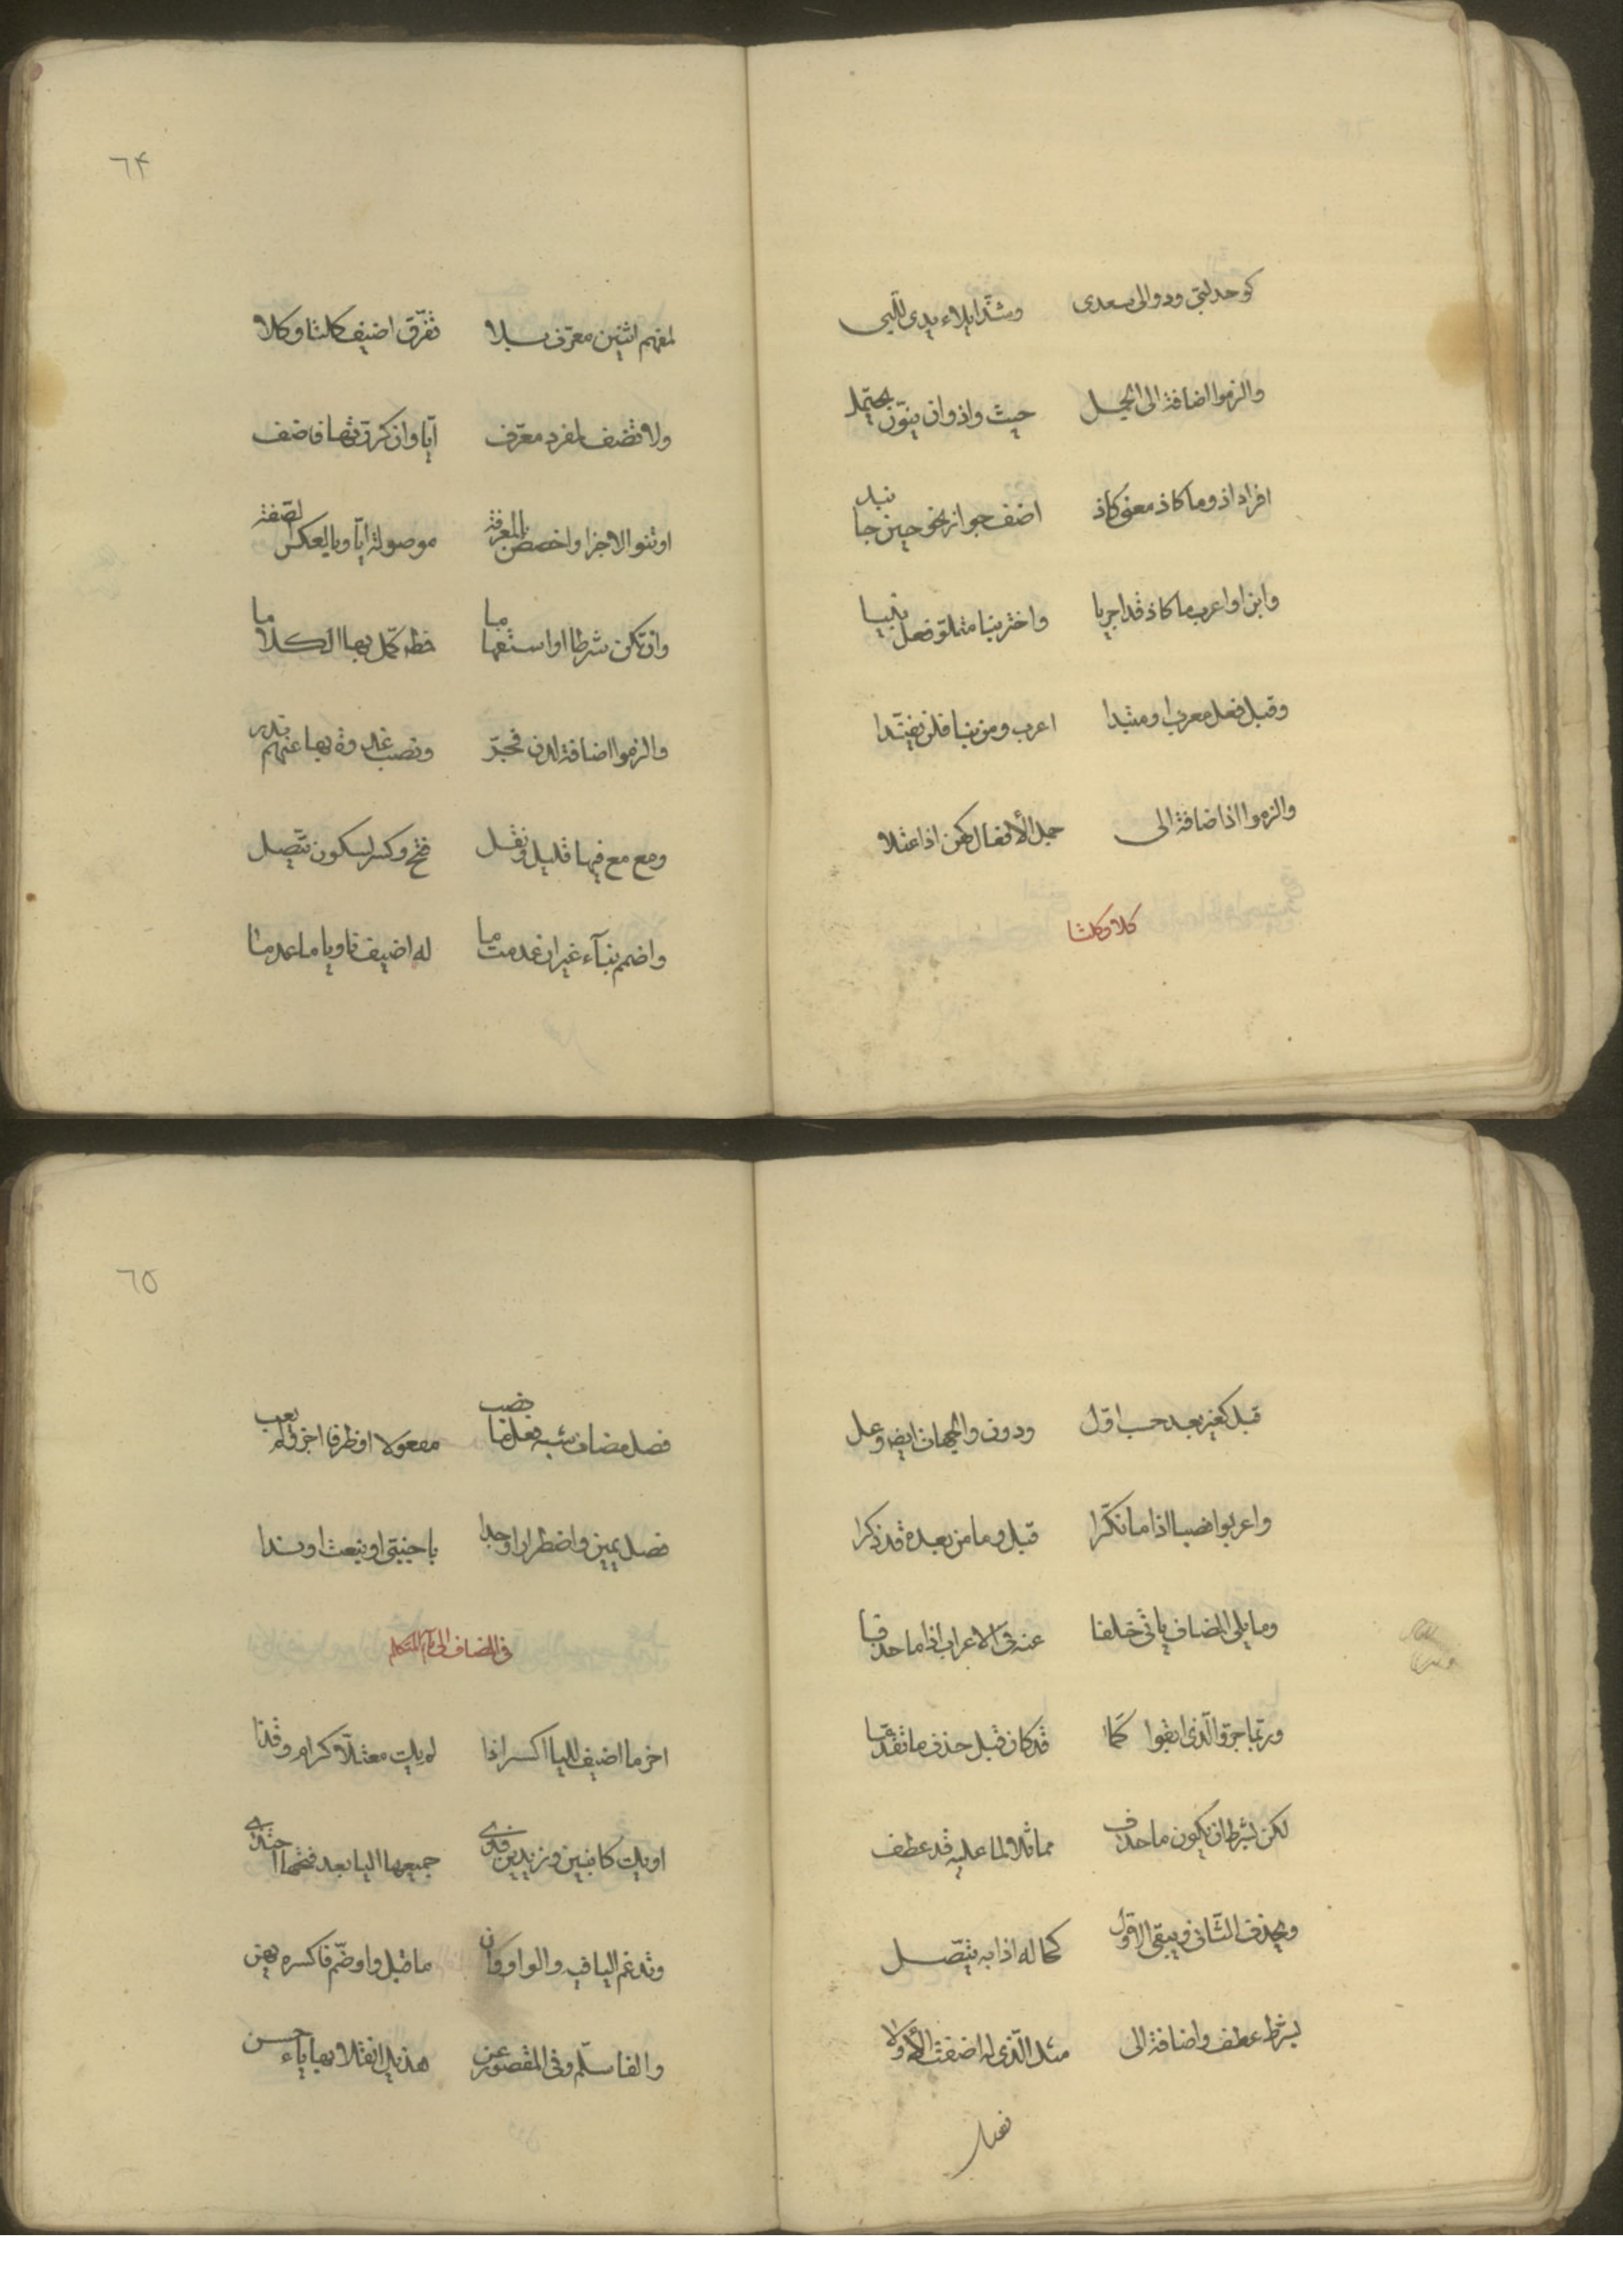 كوحد لبّى ودوالى سعدى وشذّ ايلاء يدى للبّى
والزموا اضافة الى الجمل حيث واذ وان ينوّن يحتمل
افراد اذ وما كاذ معنى كاذ اضف جوازا نحو حين جا نبذ
وابن او اعرب ما كاذ قد اجريا واختر بنا متلوّ فعل بنيا
وقبل فعل معرب او مبتدا اعرب ومن بنا فلن يفنّدا
والزموا اذا اضافة الى جمل الأفعال كهن اذا اعتلا
كلا وكلتا
٦٤
لمفهم اثنين معرّف بلا تفرّق اضيف كلتا وكلا
ولا تضف لمفرد معرّف ايّا وان كررتها فاضف
او تنو الاجزا واخصصن بالمعرفة موصولة ايّا وبالعكس الصّفة
وان تكن شرطا او استفهاما فطه كمّل بها الكلاما
والزموا اضافة لدن فجرّ ونصب غدوة بها عنهم ندر
ومع مع فيها قليل ونقل فتح وكسر لسكون يتّصل
واضمم بناء غير ان عدمت ما له اضيف ناويا ما عدما
قبل كغير بعد حسب اوّل ودون والجهات ايض وعل
واعربوا نصبا اذا ما نكّرا قبل وما من بعده قد ذكرا
وما يلى المضاف ياتى خلفا عنه فى الاعراب اذا ما حذفا
وربّما جرّوا الّذى ابقوا كما قد كان قبل حذف ما تقدّما
لكن بشرط ان يكون ما حذف مماثلا لما عليه قد عطف
ويحذف الثّانى ويبقى الاوّل كحاله اذا به يتّصل
بشرط عطف واضافة الى مثل الّذى له اضفت الأولا
فصل
٦٥
فصل مضاف شبه فعل ما نصب مفعولا او ظرفا اجز ولم يعب
فصل يمين واضطرارا وجدا باجنبىّ او بنعت او ندا
فى المضاف الى ياء المتكلم
اخر ما اضيف لليا اكسر اذا لم يك معتلّا كرام وقذا
او يك كابنين وزيدين فذى جميعها اليا بعد فتحها احتذى
وتدغم اليا فيه والواو وان ما قبل واو ضمّ فاكسره يهن
والفا سلّم وفى المقصور عن هذيل انقلابها ياء حسن